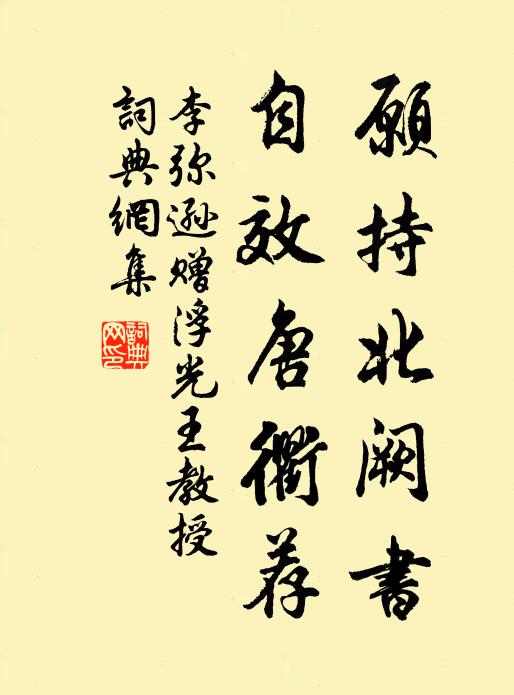 願持北阙書
自效唐衢荐
李弥遜赠浮光王教授
詞典網集
詞典网印